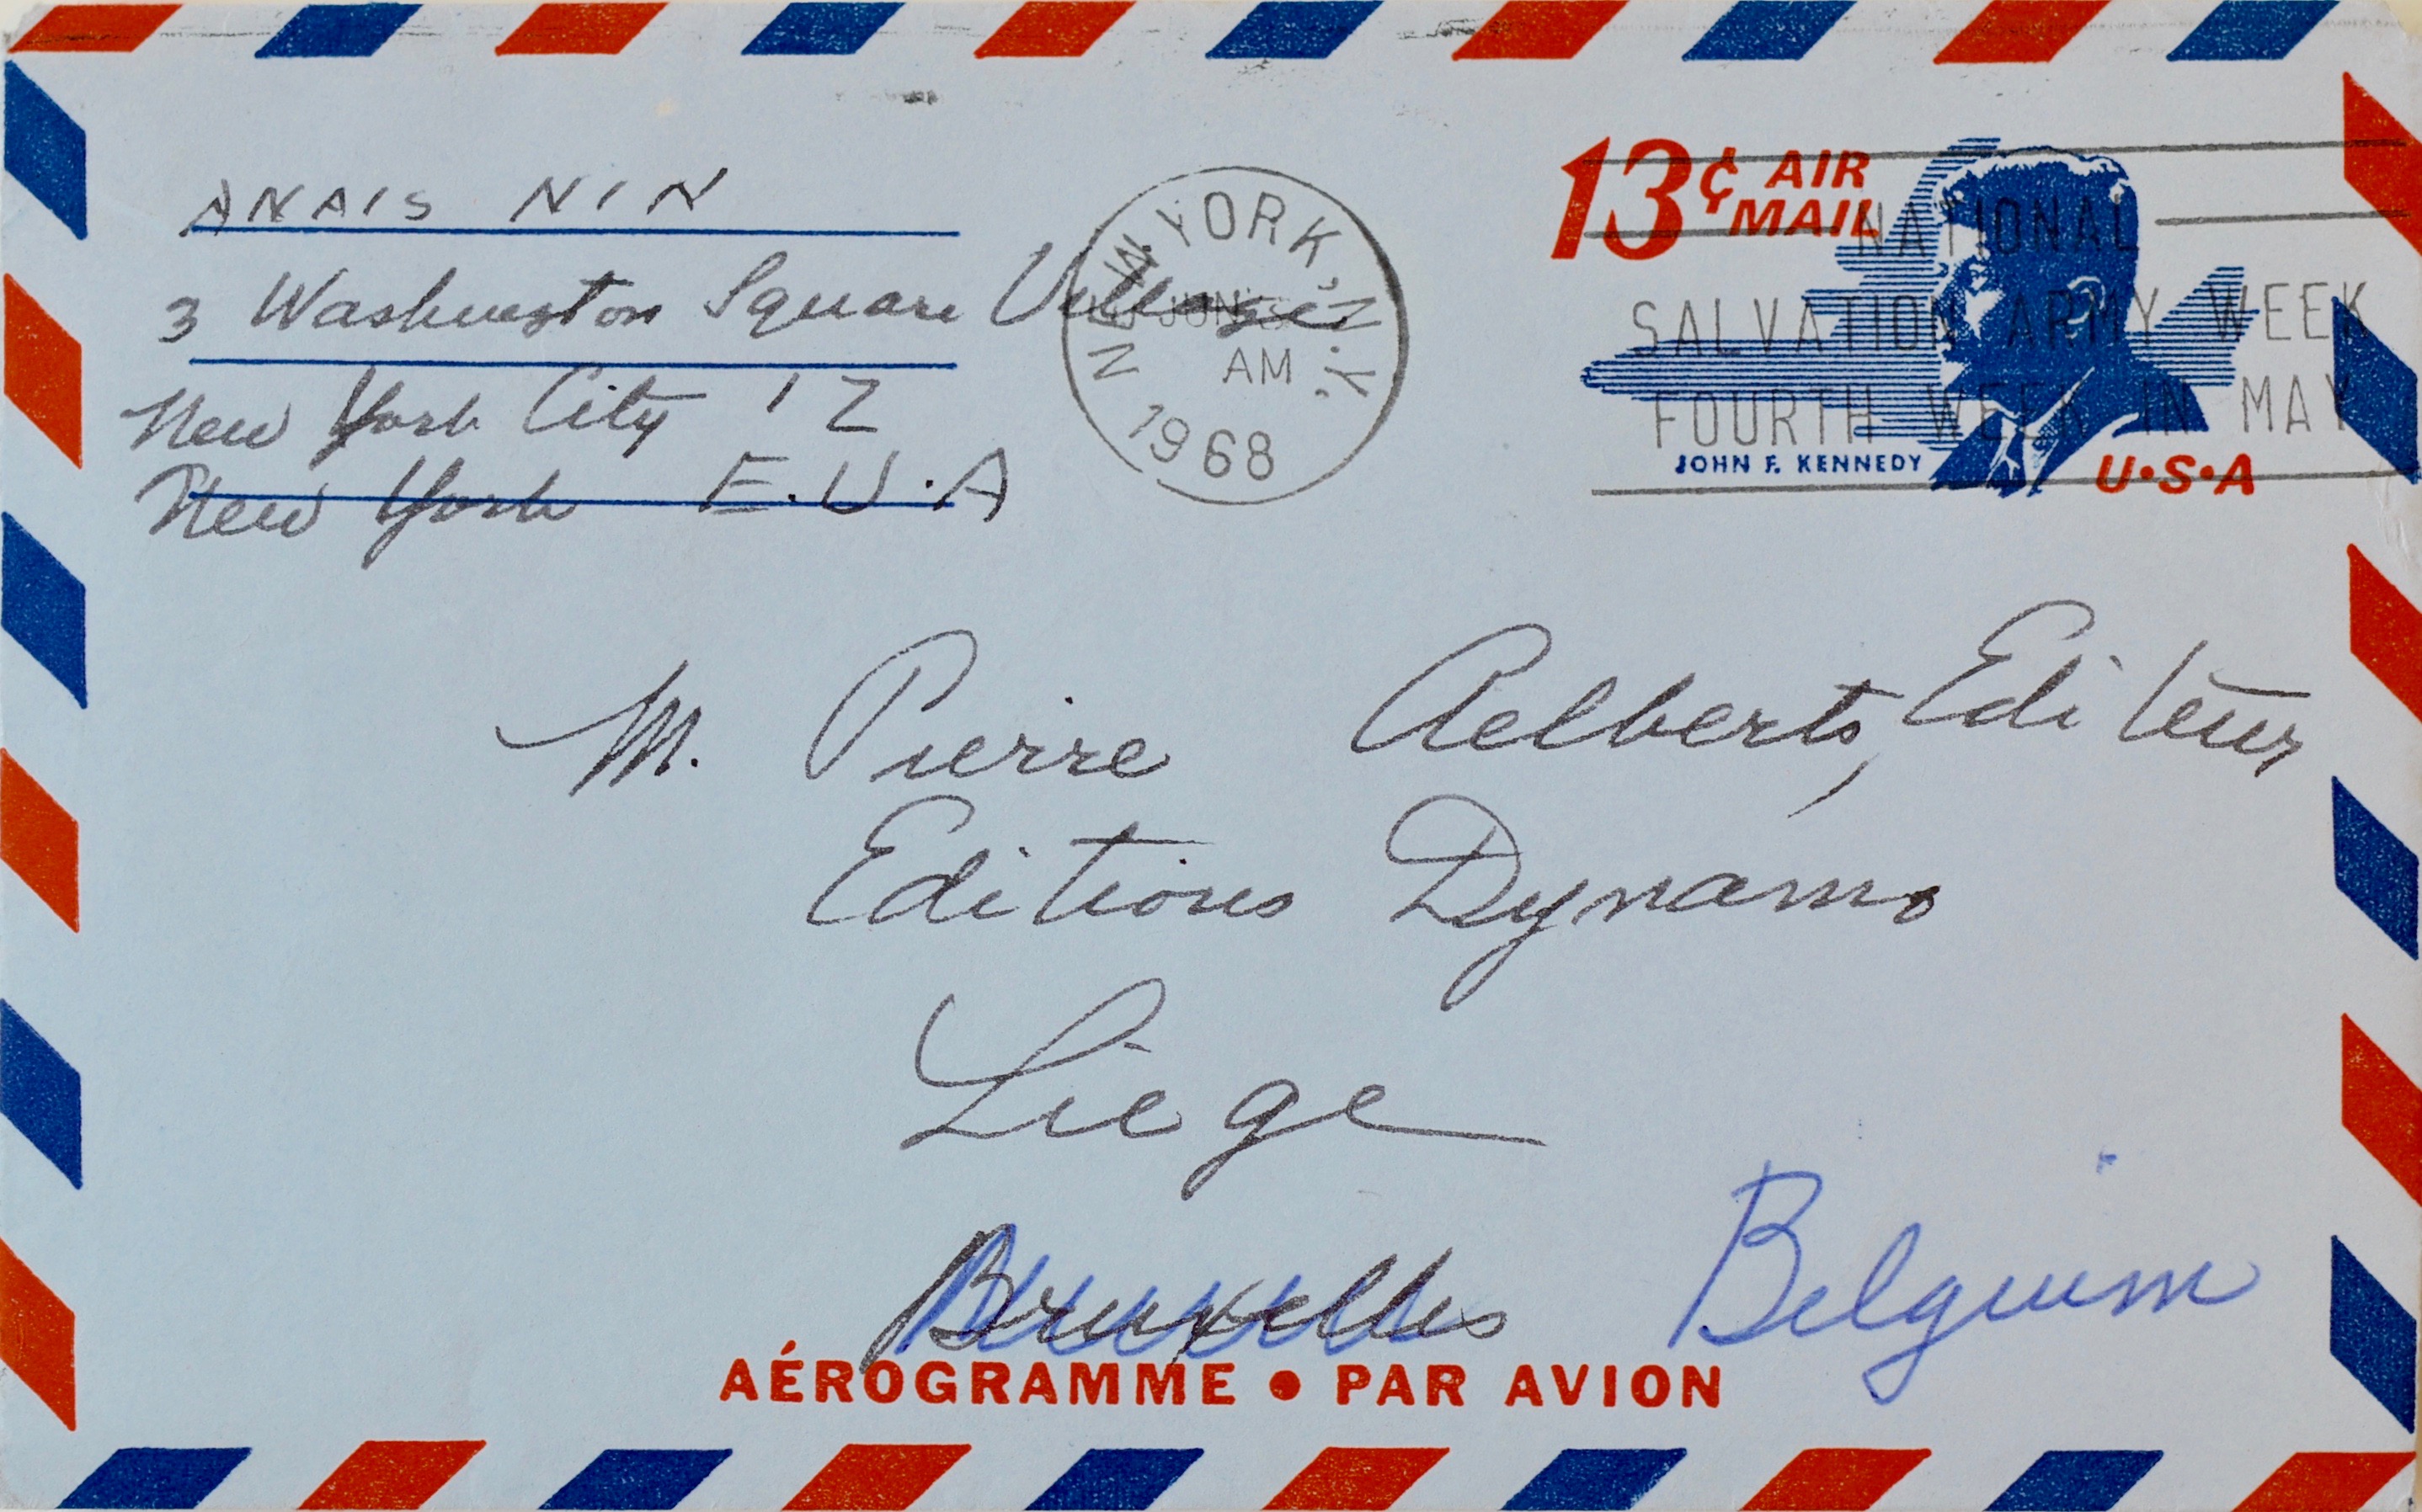 ANAIS NIN
3 Washington Square Village
New York City 12
New York E.U.A
NEW YORK, N.Y.
JUN
AM
1968
13¢ AIR MAIL
NATIONAL
SALVATION ARMY WEEK
FOURTH WEEK IN MAY
JOHN F. KENNEDY
U•S•A
M. Pierre Aelberts, Editeur
Editions Dynamo
Liege
Bruxelles Belgium
AÉROGRAMME • PAR AVION